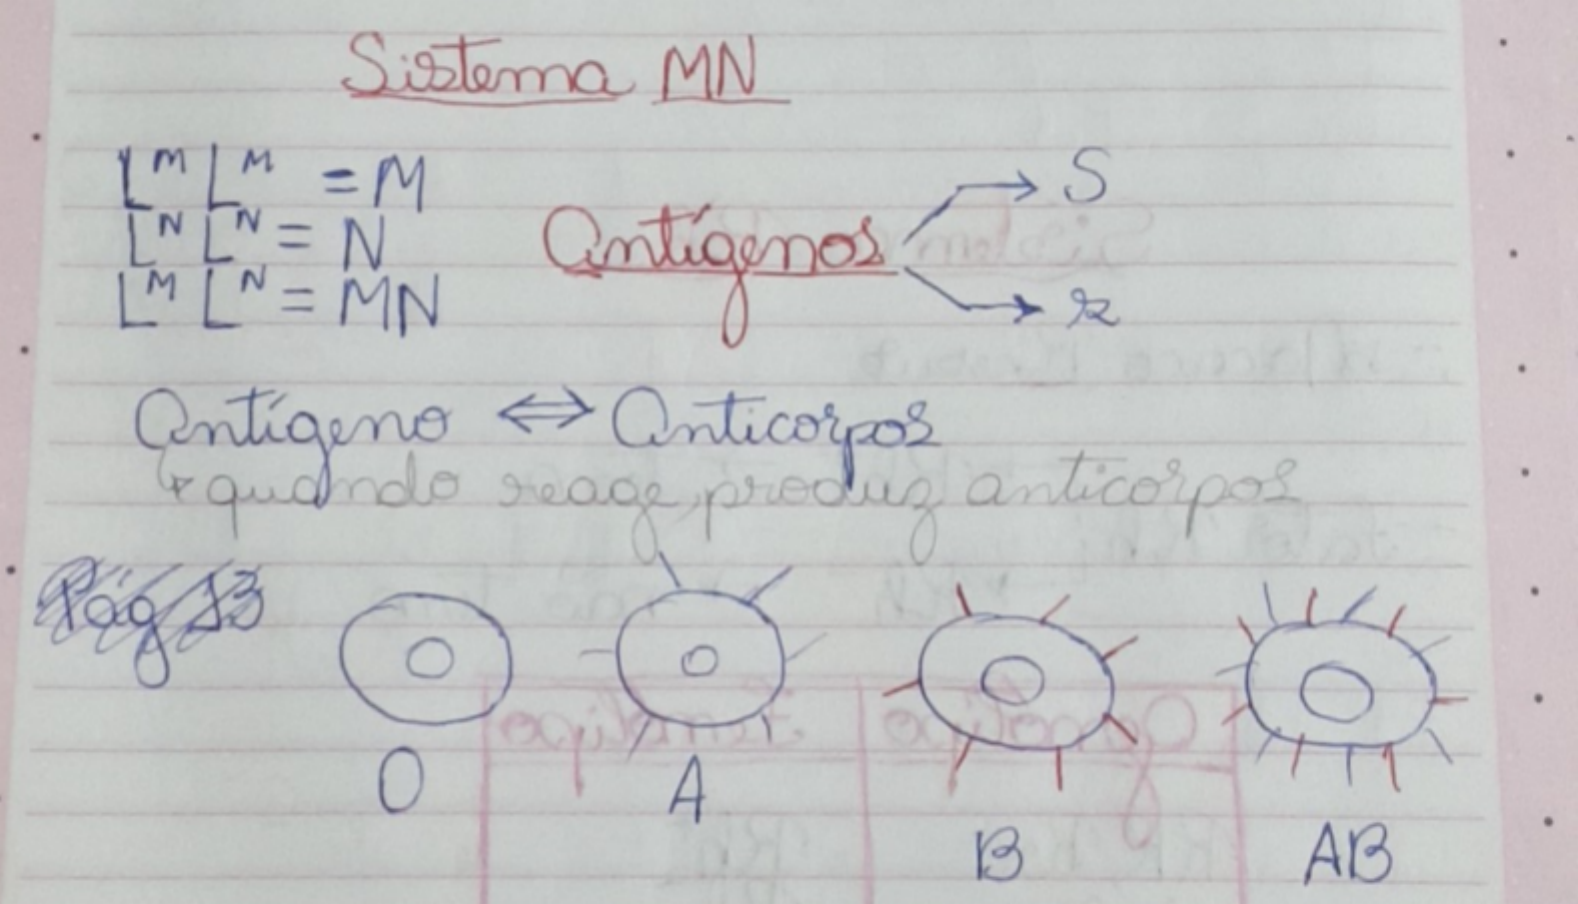 Sistema MN
L^M L^M = M
L^N L^N = N
L^M L^N = MN
Antígenos → S
→ r
Antígeno ⇔ Anticorpos
↳ quando reage, produz anticorpos
Pág 13
O A B AB